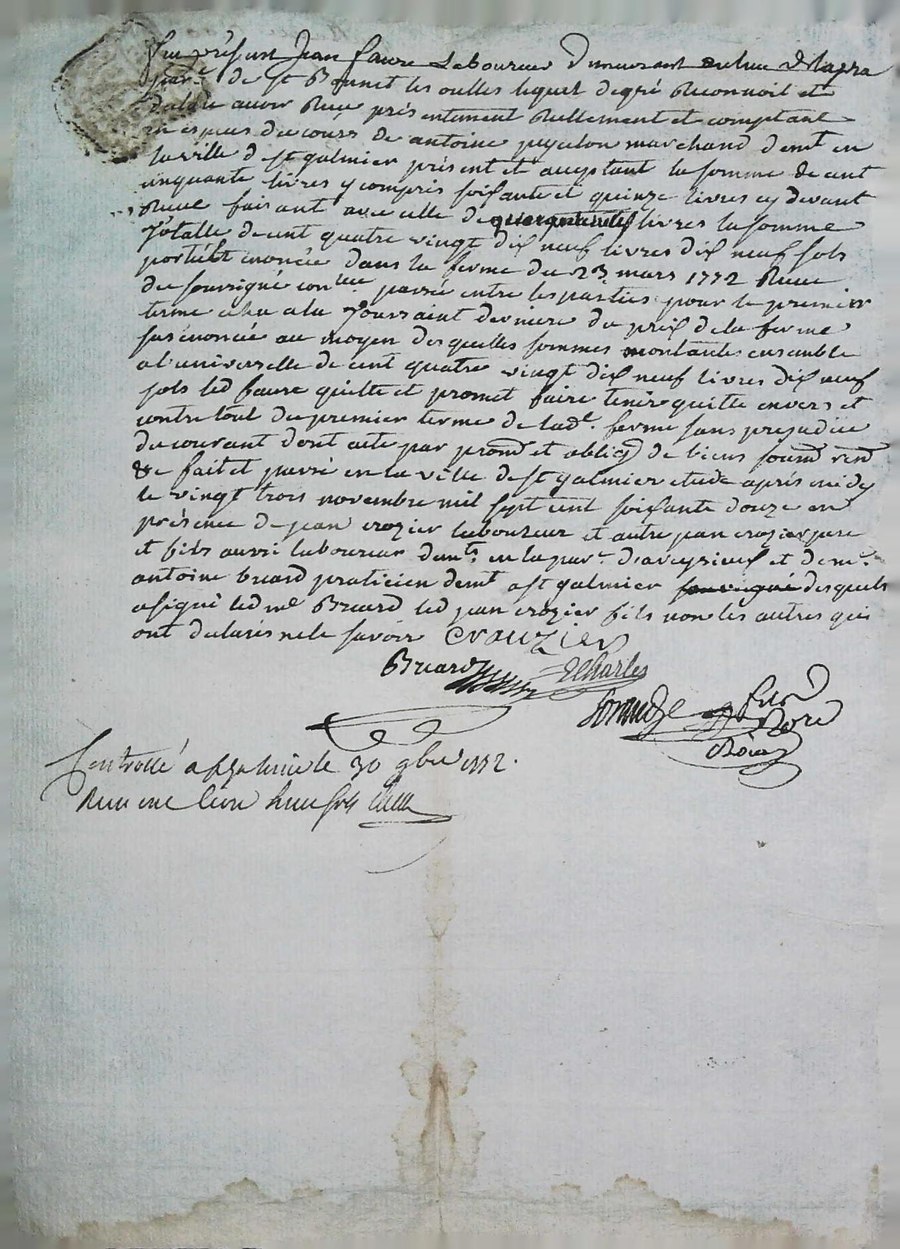 fut présent Jean faure Laboureur demeurant au lieu de lapra
parr.e de St Bonnet les oulles lequel de gré Reconnoit et
avoir Receu présentement Réellement et comptant
en espèces du cours de antoine marchand demt en
la ville de st galmier présent et aceptant la somme de cent
cinquante livres y compris soixante et quinze livres cy devant
Receue faisant avec celle de livres la somme
totalle de cent quatre vingt dix neuf livres dix neuf sols
portée et enoncée dans la ferme du 23 mars 1772 Receue
du soussigné passée entre les parties pour le premier
terme echu a la Toussaint derniere du prix de la ferme
sus enoncée au moyen desquelles sommes montantes ensemble
a l'universelle de cent quatre vingt dix neuf livres dix neuf
sols led faure quitte et promet faire tenir quitte envers et
contre tout du premier terme de lad.e ferme sans prejudice
du courant dont acte par prom et oblig de biens soum ren
&c fait et passé en la ville de st galmier etude après midy
le vingt trois novembre mil sept cent soixante douze en
présence de jean crozier laboureur et autre jean crozier pere
et fils aussi laboureur demts en la par.e d'aveysieux et de m.e
antoine bruard praticien demt a st galmier desquels
a signé led me Bruard led jean crozier fils non les autres qui
ont declarés ne le savoir Crouzier
Bruard DeCharles
Controllé a st galmier le 30 9bre 1772.
Receu une livre sols